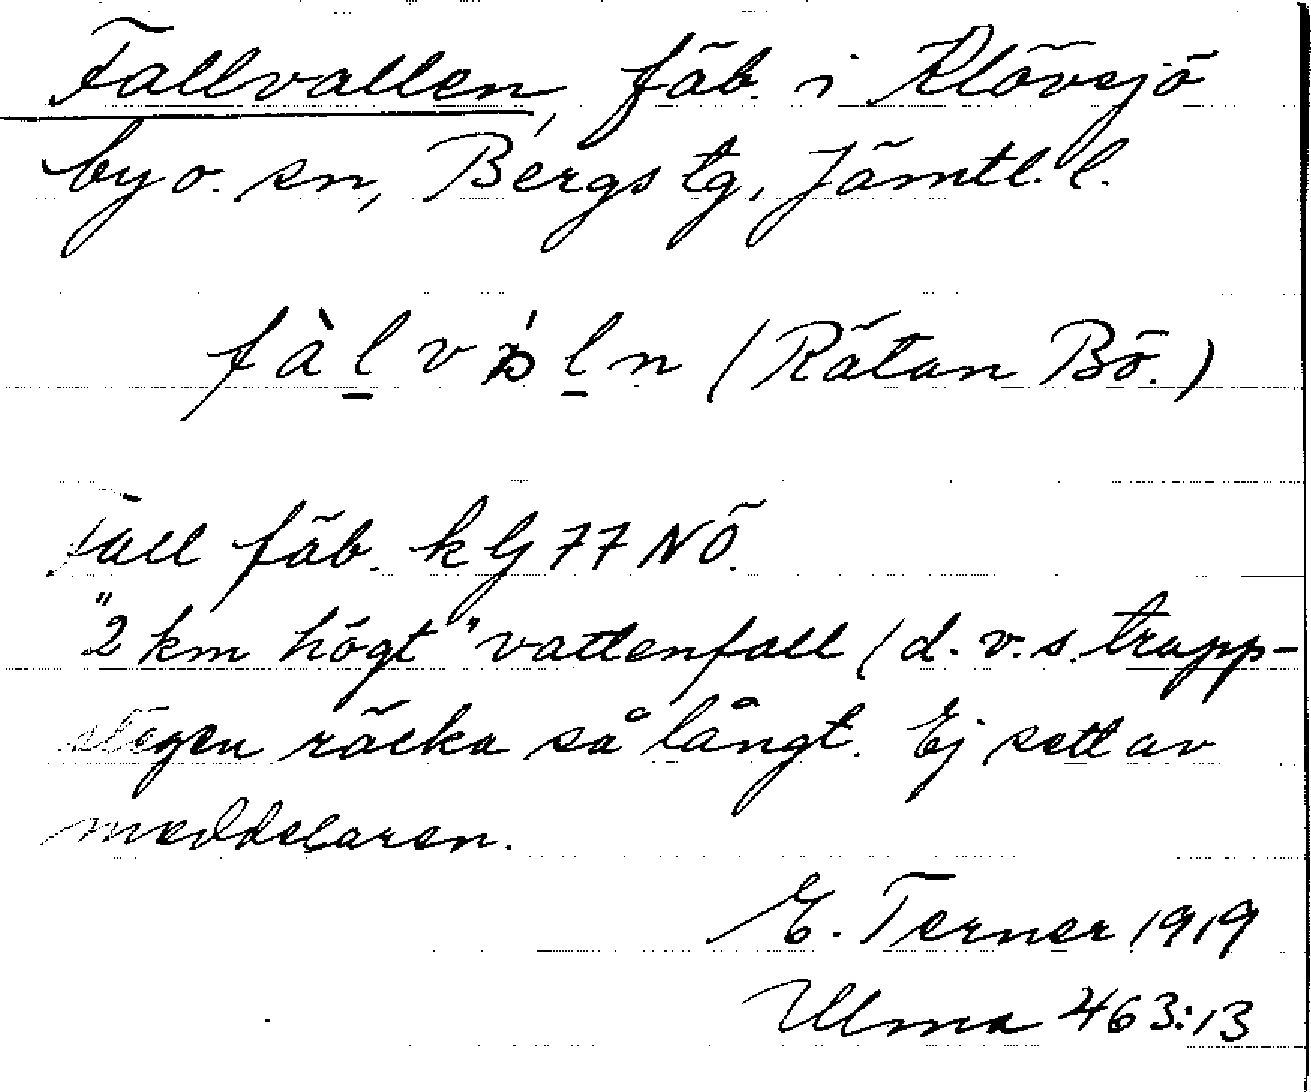 Fallvallen, fäb. i Klövsjö
by o. sn, Bergs tg, Jämtl. l.
fàl̲ v l̲n (Rätan Bö.)
Fall fäb. kG 77 NÖ.
"2 km högt" vattenfall (d.v.s. trapp-
stegen räcka så långt. Ej sett av
meddelaren.
E. Terner 1919
Ulma 463:13